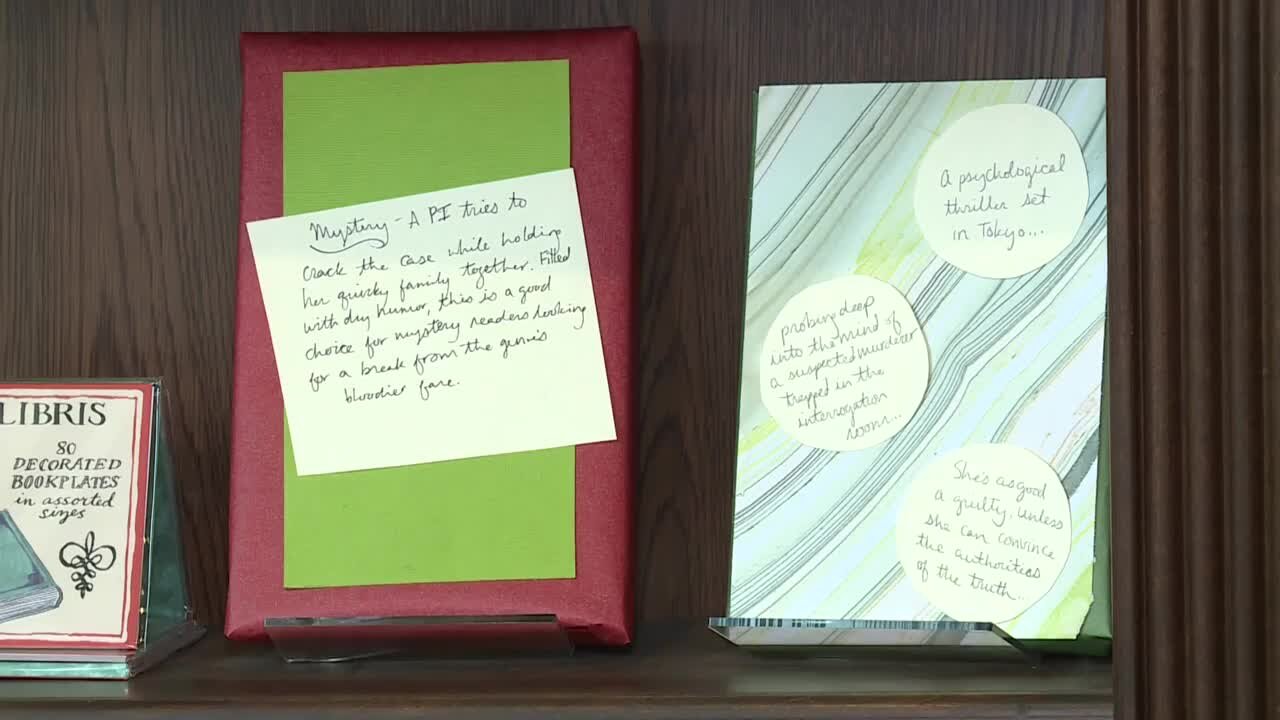 LIBRIS
80
DECORATED
BOOKPLATES
in assorted
sizes
Mystery - A PI tries to
crack the case while holding
her quirky family together. Filled
with dry humor, this is a good
choice for mystery readers looking
for a break from the genre's
bloodier fare.
A psychological
thriller set
in Tokyo...
probing deep
into the mind of
a suspected murderer
trapped in the
interrogation
room...
She's as good
a guilty, unless
she can convince
the authorities
of the truth...